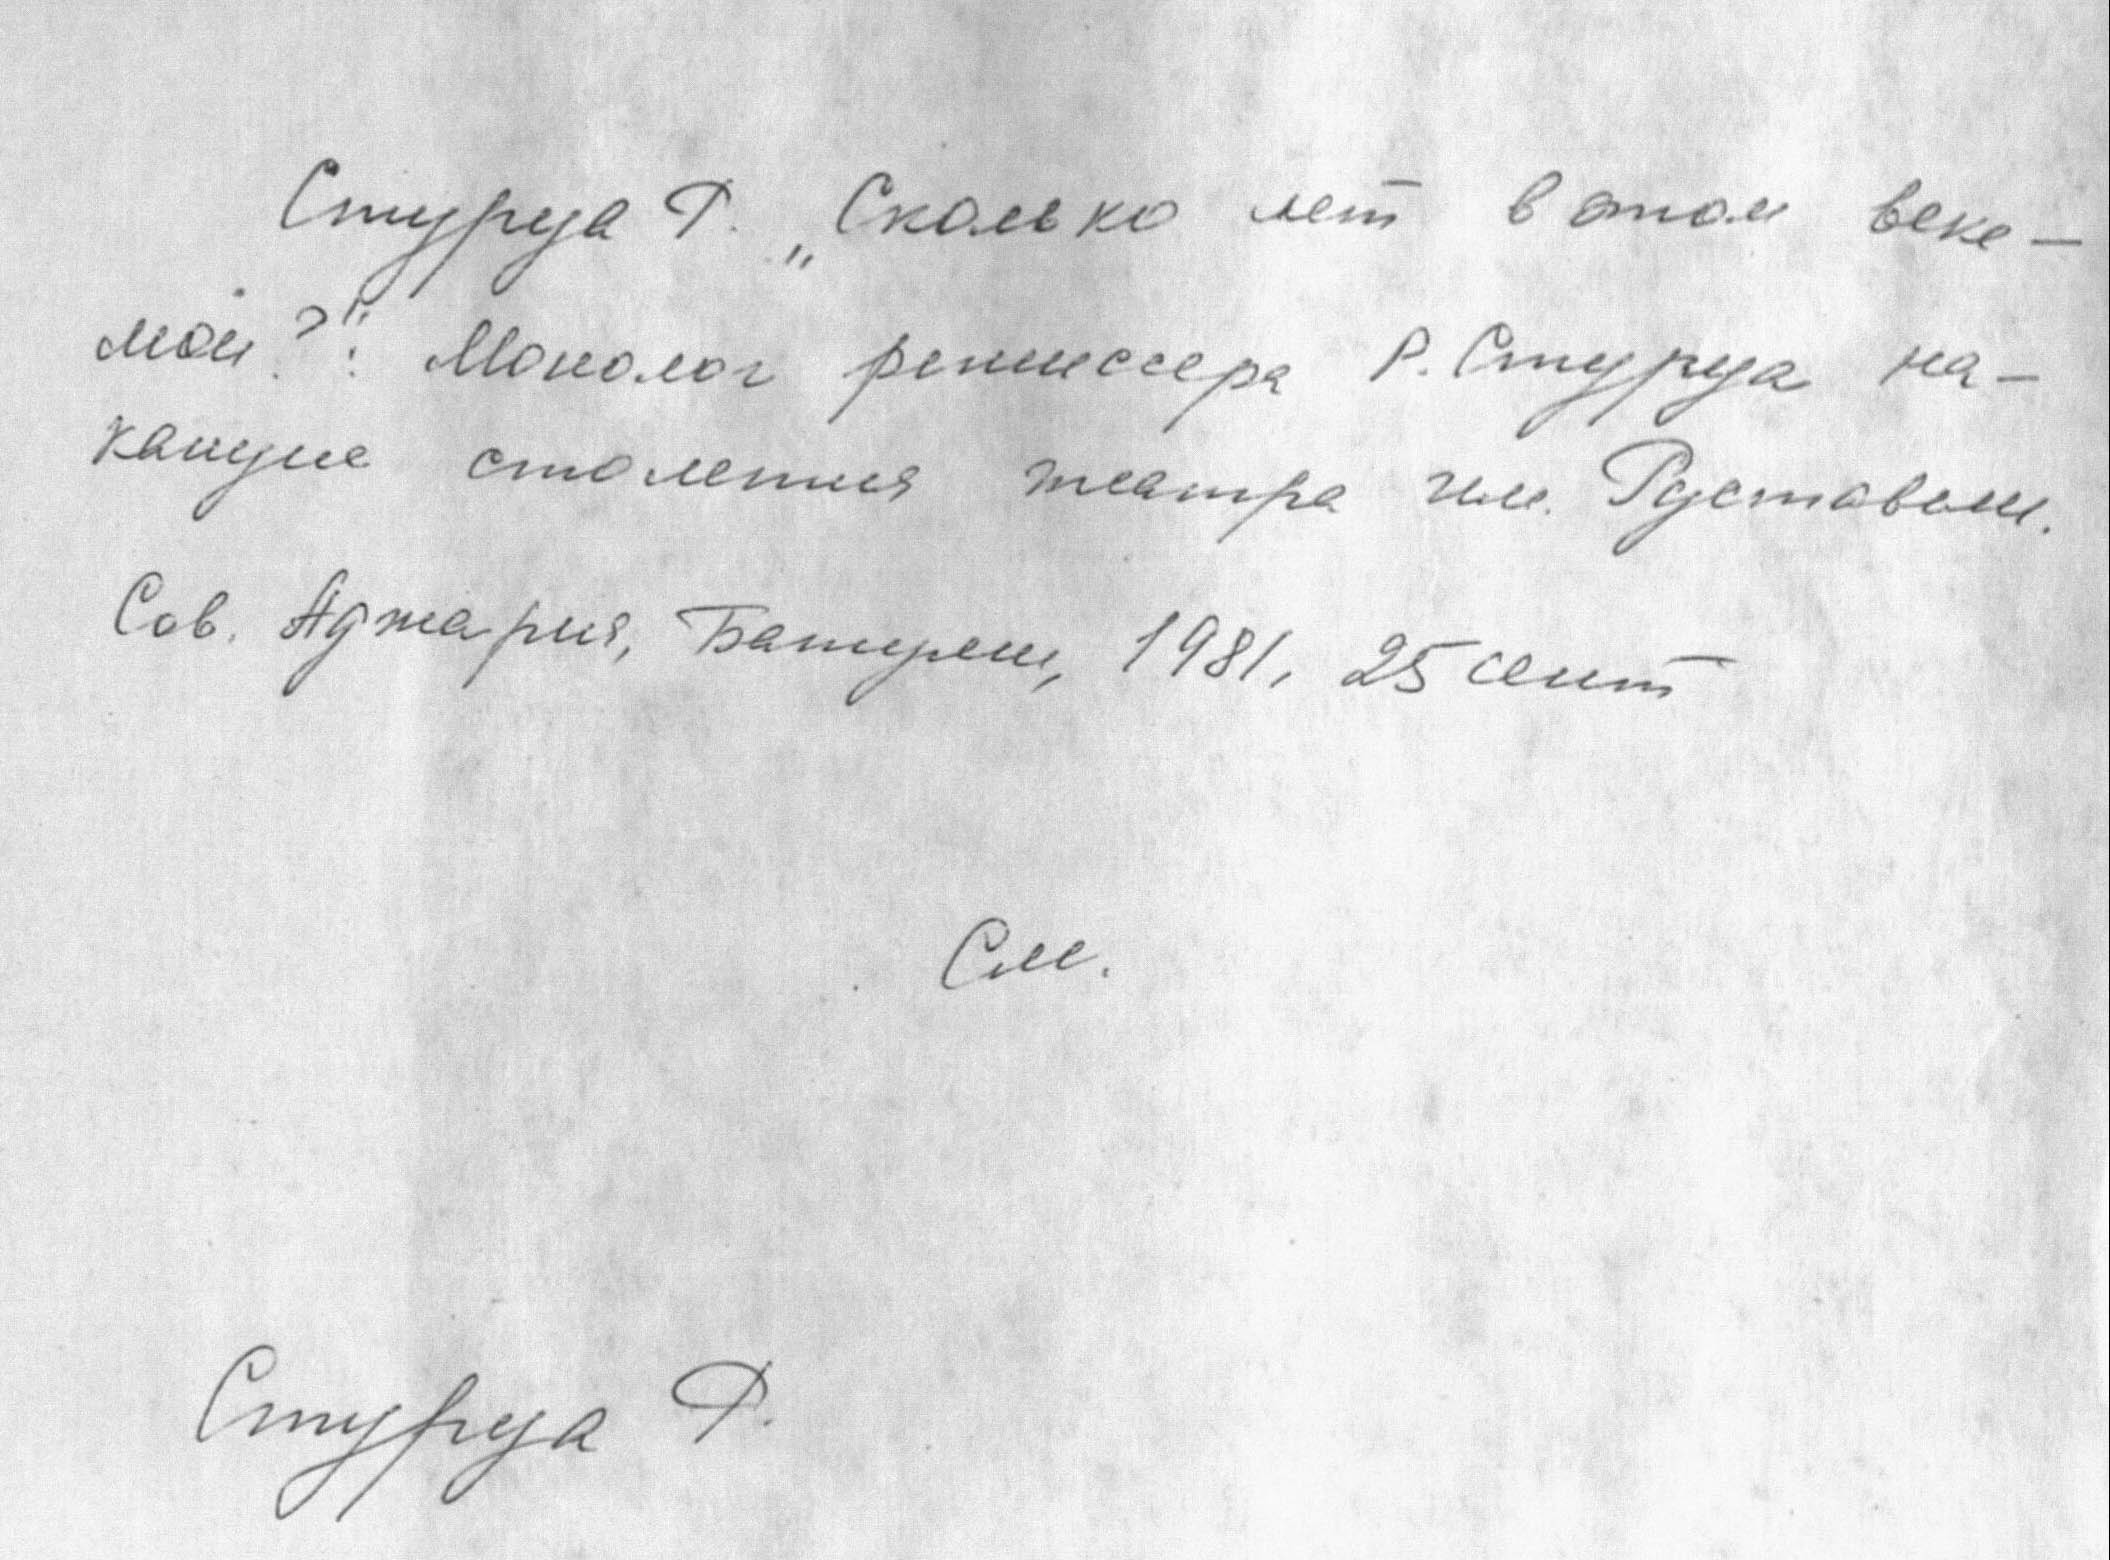 Стуруа Р. „Сколько лет в этом веке –
мои?": Монолог режиссера Р. Стуруа на-
кануне столетия театра им. Руставели.
Сов. Аджария, Батуми, 1981, 25 сент
См.
Стуруа Р.